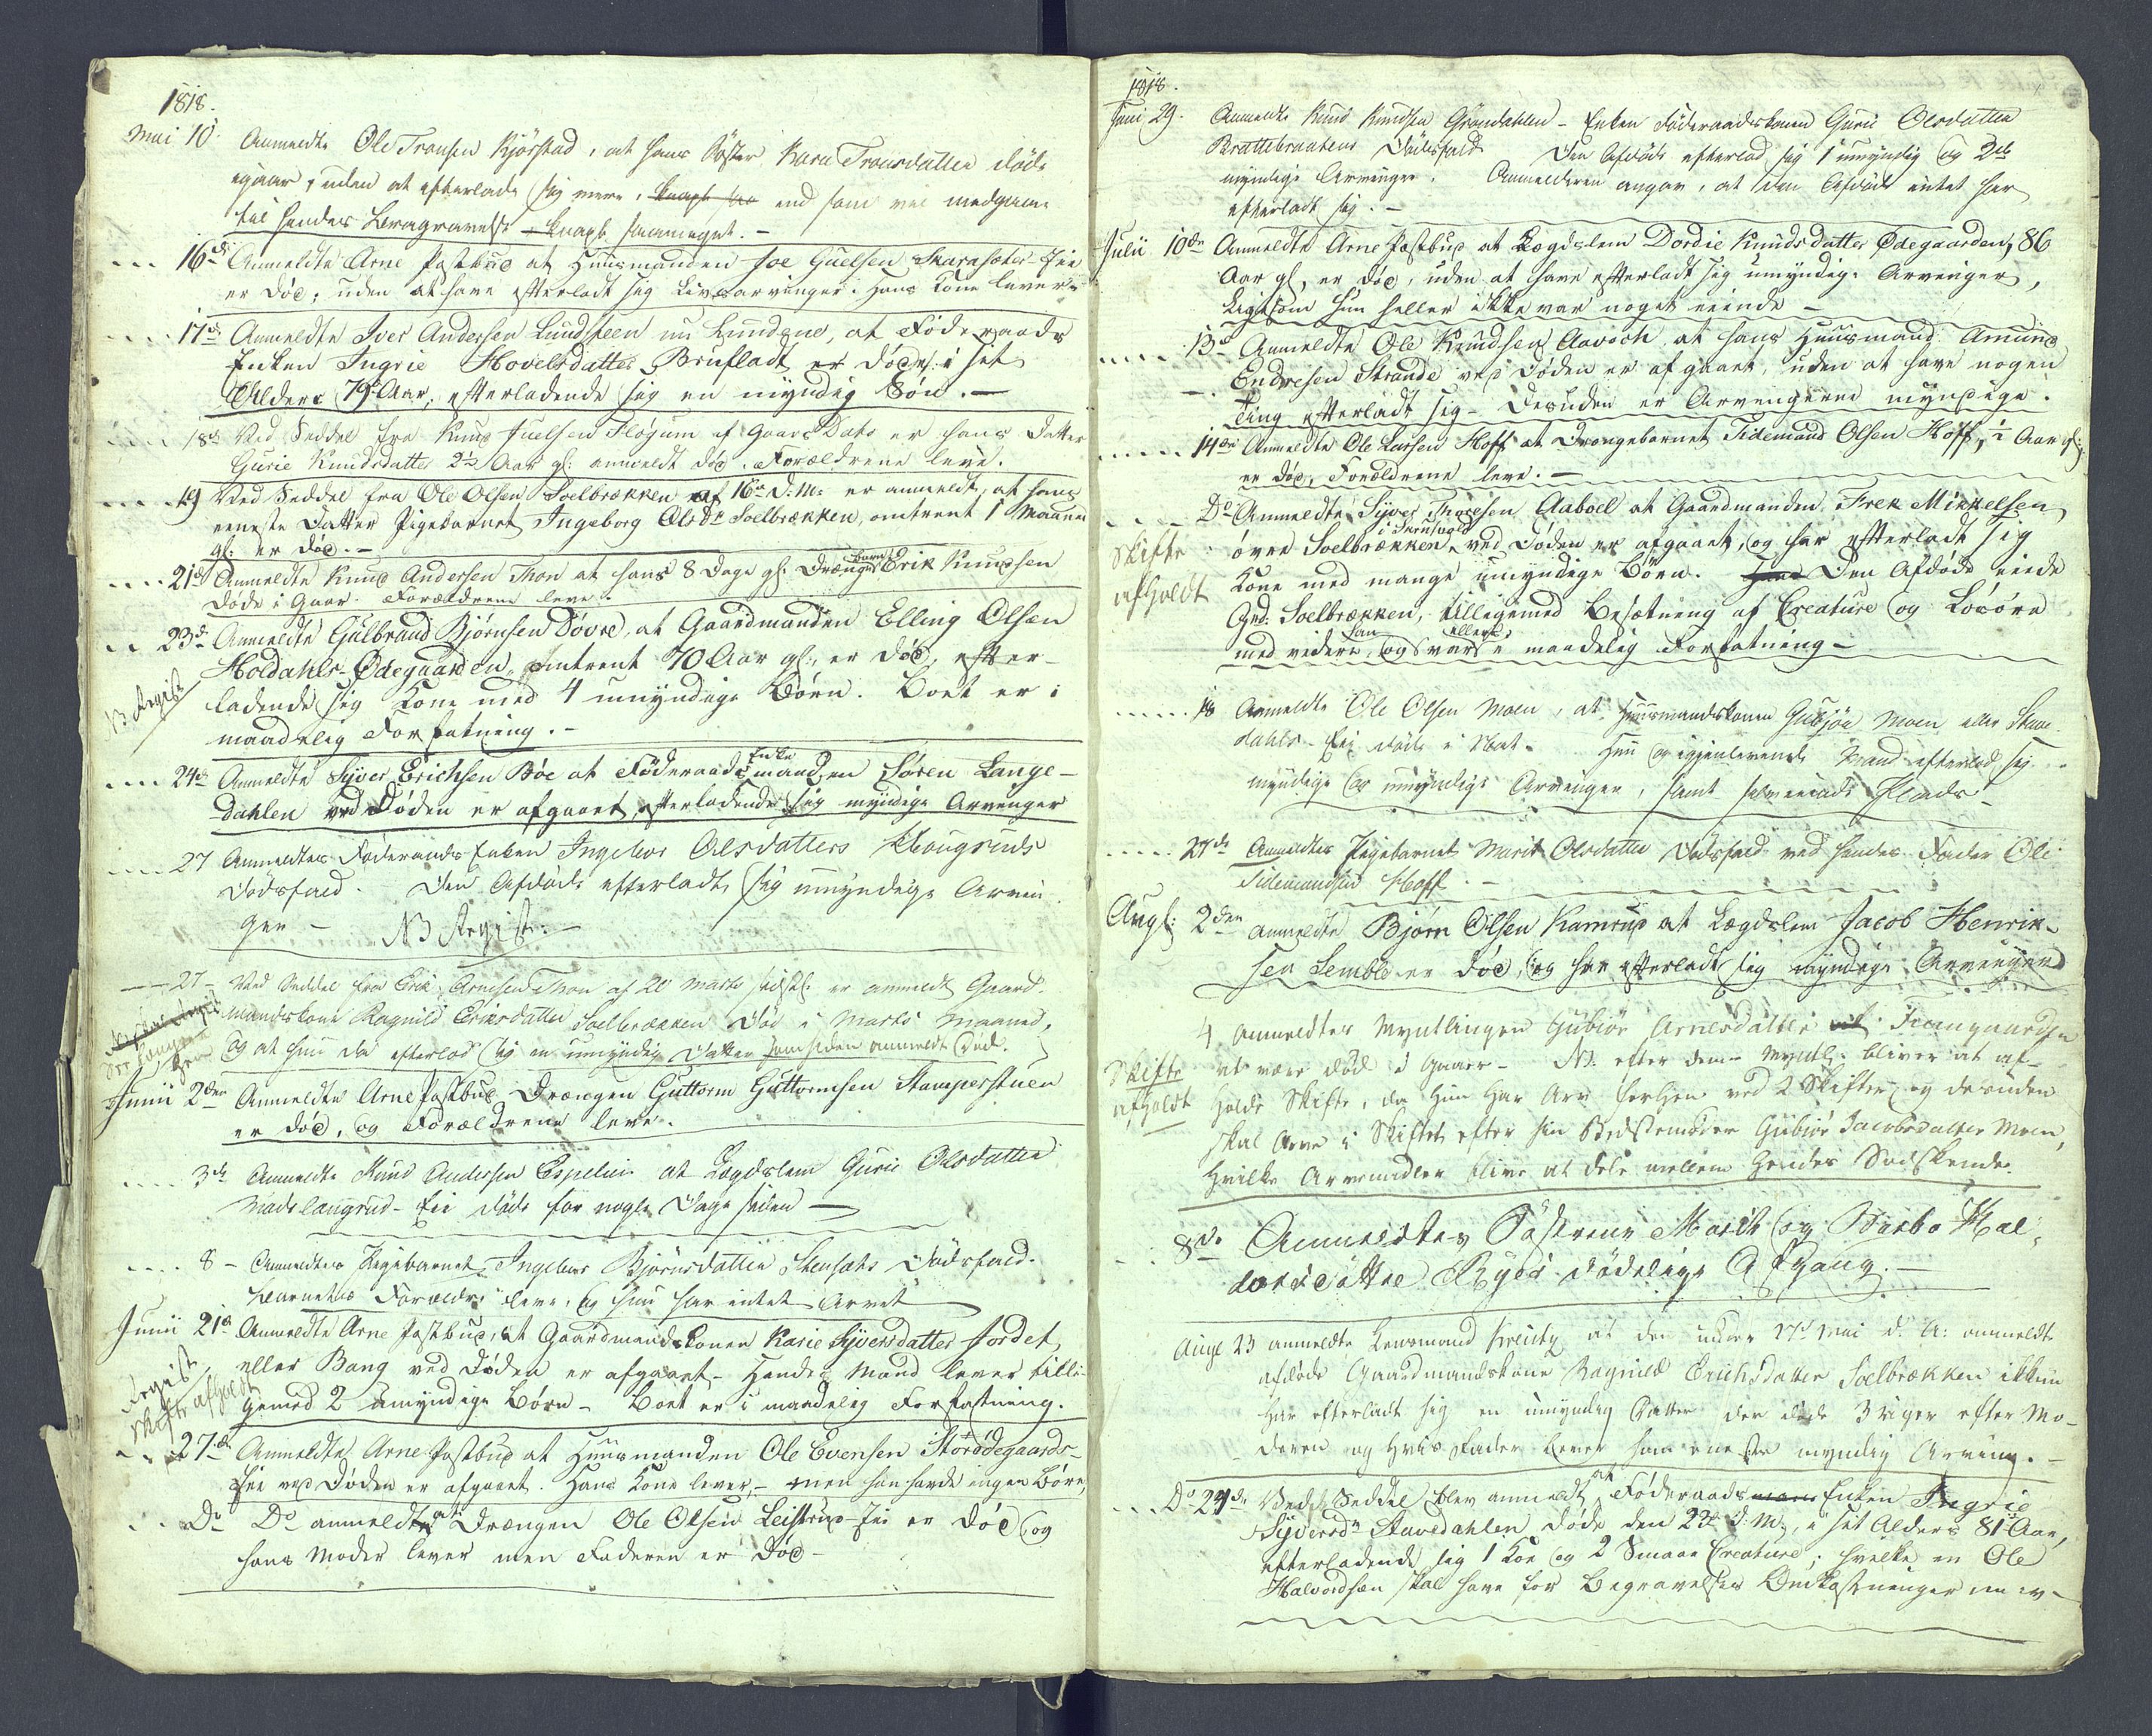 1818.
Mai 10. Anmeldte Ole Tronsen Kjörstad, at hans Söster Kari Tronsdatter döde
igaar, uden at efterlade sig mere, end som vil medgaae
til hendes Begravelse knapt saameget. –
16de Anmeldte Arne Postbud at Huusmanden Joe Guelsen Skarasæter-Eie
er död, uden at have efterladt sig Livsarvinger. Hans Kone lever –
17de Anmeldte Iver Andersen Lundsteen nu Lundgne, at Föderaads
Enken Ingrie Hovelsdatter Brufladt er död i sit
Alders 79de Aar, efterladende sig en myndig Sön. –
18de Ved Seddel fra Knud Juelsen Fløgum af Gaars Dato er hans Datter
Gurie Knudsdatter 2½ Aar gl: anmeldt död. Forældrene leve.
19 Ved Seddel fra Ole Olsen Soelbrækken af 16de d: M: er anmeldt, at hans
eeneste Datter Pigebarnet Ingeborg Olsdr Soelbrækken, omtrent 1 Maaned
gl: er död. –
21de Anmeldte Knud Andersen Thon at hans 8 Dage gl: Drænge barn Erik Knudsen
döde i Gaar. Forældrene leve.
23de Anmeldte Gulbrand Bjørnsen Dövre, at Gaardmanden Elling Olsen
Holdahls-Ødegaarden, omtrent 70 Aar gl:, er död, efter-
NB Regist
ladende sig Kone med 4 umyndige Börn. Boet er i
maadelig Forfatning. –
24de Anmeldte Syver Erichsen Böe at Föderaads Enke manden Sören Lange-
dahlen ved Döden er afgaaet, efterladende sig myndige Arvinger
27 Anmeldtes Föderaads Enken Ingebor Olsdatters Hougruds
Dödsfald. Den Afdöde efterladt sig umyndige Arvin
ger – NB Regist: –
27 – Ved Seddel fra Erik Arnesen Thon af 20 Marts sidstl: er anmeldt Gaard-
mandskone Ragnild Eriksdatter Soelbrækken Död i Marts Maaned,
og at hun da efterlod sig en umyndig Datter som siden anmeldt Död.
Junii 2den Anmeldte Arne Postbud Drængen Guttorm Guttormsen Stamperstuen
er död, og Forældrene leve.
3de Anmeldte Knud Andersen Espelie at Lægdslem Gurie Olsdatter
Madslangrud-Eie döde for nogle Dage siden –
8 – Anmeldtes Pigebarnet Ingebor Björnsdatter Stensæts Dödsfald.
Barnets Forældre leve, og hun har intet Arvet
Junii 21de Anmeldte Arne Postbud, at Gaardmandskonen Karie Syversdatter Jordet,
eller Bang ved Döden er afgaaet – Hendes Mand lever tilli-
Regist. Skifte afholdt
gemed 2 umyndige Börn – Boet er i maadelig Forfatning.
27de Anmeldte Arne Postbud at Huusmanden Ole Evensen Storödegaards-
Eie ved Döden er afgaaet. Hans Kone lever, – men han havde ingen Börn,
Do Do anmeldte at Drængen Ole Olsen Leistrud-Eie er död og
hans Moder lever men Faderen er död –
1818.
Juni 29. Anmeldte Knud Knudsen Gröndahlen – Enken Föderaadskonen Gurie Olesdatter
Brattebraatens Dödsfald. Den Afdöde efterlod sig 1 umyndig og 2de
myndige Arvinger. Anmelderen angav, at den Afdöde intet har
efterladt sig. –
Julii 10de Anmeldte Arne Postbud at Lægdslem Dordie Knudsdatter Ødegaarden, 86
Aar gl, er död, uden at have efterladt sig umyndige Arvinger,
Ligesom hun heller ikke var noget eiende –
13de Anmeldte Ole Knudsen Aavoch at hans Huusmand Amund
Endresen Strande ved Döden er afgaaet, uden at have nogen
Ting efterladt sig – Desuden er Arvingerne myndige.
14de Anmeldte Ole Larsen Hoff at Drengebarnet Tidemand Olsen Hoff, ½ Aar gl:
er död, Forældrene leve. –
Do Anmeldte Syver Thoresen Aaboel at Gaardmanden Frek Mikkelsen
Skifte afholdt
övre Soelbrækken i Aurdahl ved Döden er afgaaet, og har efterladt sig
Kone med mange umyndige Börn. Den Afdöde eiede
Grd: Soelbrækken, tilligemed Besætning af Creature og Lösöre
med videre, og han var ellers i maadelig Forfatning –
18 Anmeldte Ole Olsen Moen, at Huusmandskonen Gubjör Moen eller Stave
dahls-Eie döde i Nat. Hun og igjenlevende Mand efterlod sig
myndige og umyndige Arvinger, samt
27de Anmeldtes Pigebarnet Marit Olsdatter Dödsfald ved hendes Fader Ole
Tidemandsen Hoff. –
Augs: 2den anmeldte Bjørn Olsen Kamrud at Lægdslem Jacob Henrik-
sen Semble er död, og har efterladt sig myndige Arvinger
4 anmeldtes Myndlingen Gubiör Arnesdatter Framgaarden
at være död i Gaar – NB. efter denne Myndl: bliver at af-
Skifte afholdt
holde Skifte, da hun har Arv forhen ved 2 Skifter og desuden
skal Arve i Skiftet efter sin Bedstemoder Gubiör Jacobsdatter Moen,
hvilke Arvemidler blive at dele mellem hendes Sødskende.
8de Anmeldtes Söstrene Marit og Barbo Hal-
dorsdöttre Ryes dødelige Afgang. –
Augs 23 anmeldte Lensmand Kreutz at den under 27de Mai d. A: anmeldte
afdöde Gaardmandskone Ragnild Erichsdatter Soelbrækken ikkun
har efterladt sig en umyndig Datter der döde 3 uger efter Mo-
deren og hvis Fader lever som eneste myndig Arving. –
Do 24de Ved Seddel blev anmeldt at Föderaads Enken Ingrie
Syversdr Stavedahlen döde den 23de d: M:, i sit Alders 81de Aar,
efterladende sig 1 Koe og 2 Smaae Creature; hvilke en Ole
Halvordsen skal have for Begravelses Omkostninger